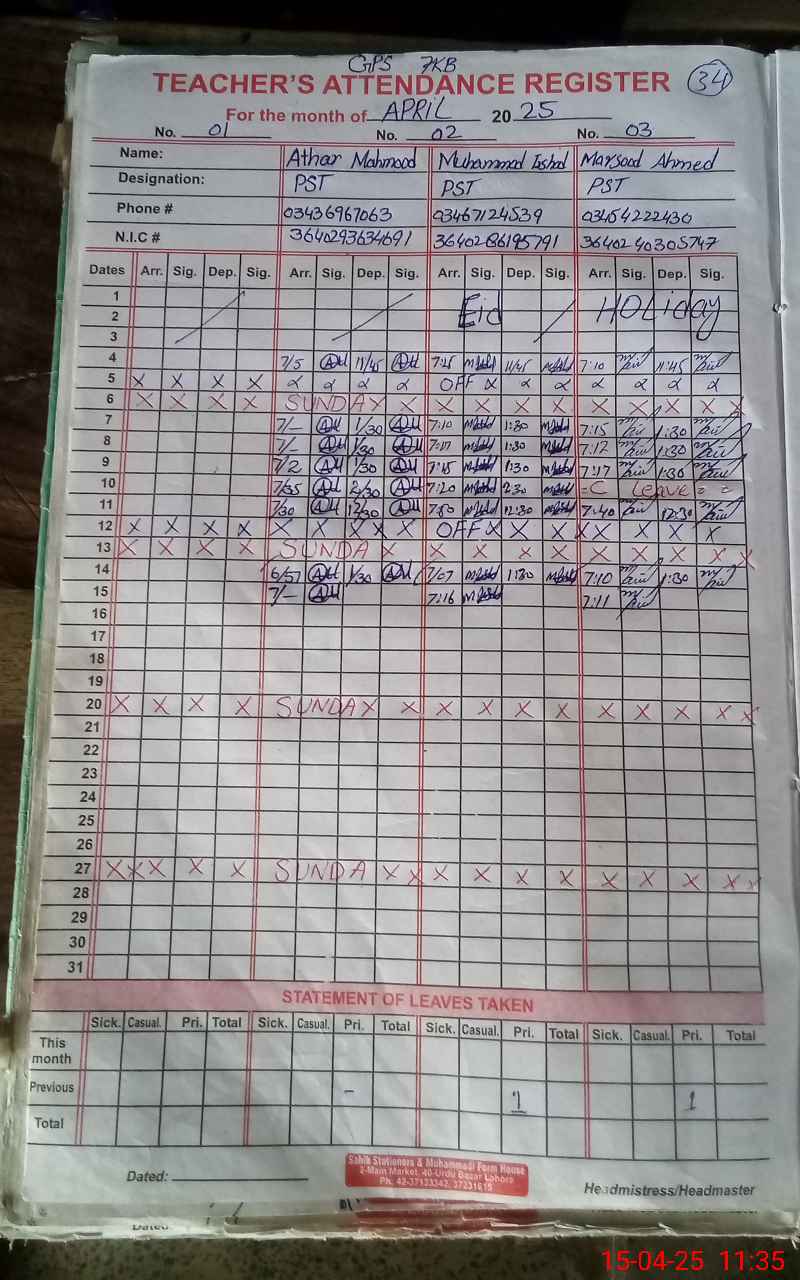 GPS 7KB
TEACHER'S ATTENDANCE REGISTER 34
For the month of APRIL 2025
No. 01 No. 02 No. 03
Name: Athar Mahmood Muhammad Maqsood Ahmed
Designation: PST PST PST
Phone # 03436967063 03467124539 03454222430
N.I.C # 3640293634691 3640286195791 3640240305747
Dates Arr. Sig. Dep. Sig. Arr. Sig. Dep. Sig. Arr. Sig. Dep. Sig. Arr. Sig. Dep. Sig.
1
2 Eid Holiday
3
4 7/5 11/45 7:25 11/45 7:10 11:45
5 X X X X OFF X
6 X X X X SUNDAX X X X X X X X X X
7 7/- 1/30 7:10 1:30 7:15 1:30
8 7/- 1/30 7:17 1:30 7:12 1:30
9 7/2 1/30 7:15 1:30 7:17 1:30
10 7/35 2/30 7:20 2:30 C Leave
11 7/30 12/30 12:30 7:40 12:30
12 X X X X X X X X X OFF X X X X X X X X X
13 X X X X SUNDA X X X X X X X X X X
14 6/57 1/30 7/07 1:30 7:10 1:30
15 7/- 7:16 7:11
16
17
18
19
20 X X X X SUNDAX X X X X X X X X X X
21
22
23
24
25
26
27 X X X X X SUNDA X X X X X X X X X X X
28
29
30
31
STATEMENT OF LEAVES TAKEN
Sick. Casual. Pri. Total Sick. Casual. Pri. Total Sick. Casual. Pri. Total Sick. Casual. Pri. Total
This month
Previous - 1 1
Total
Dated:
Sahib Stationers & Muhammadi Form House
2-Main Market, 40-Urdu Bazar Lahore
Ph: 42-37133342, 37231615
Headmistress/Headmaster
Dated:
15-04-25 11:35